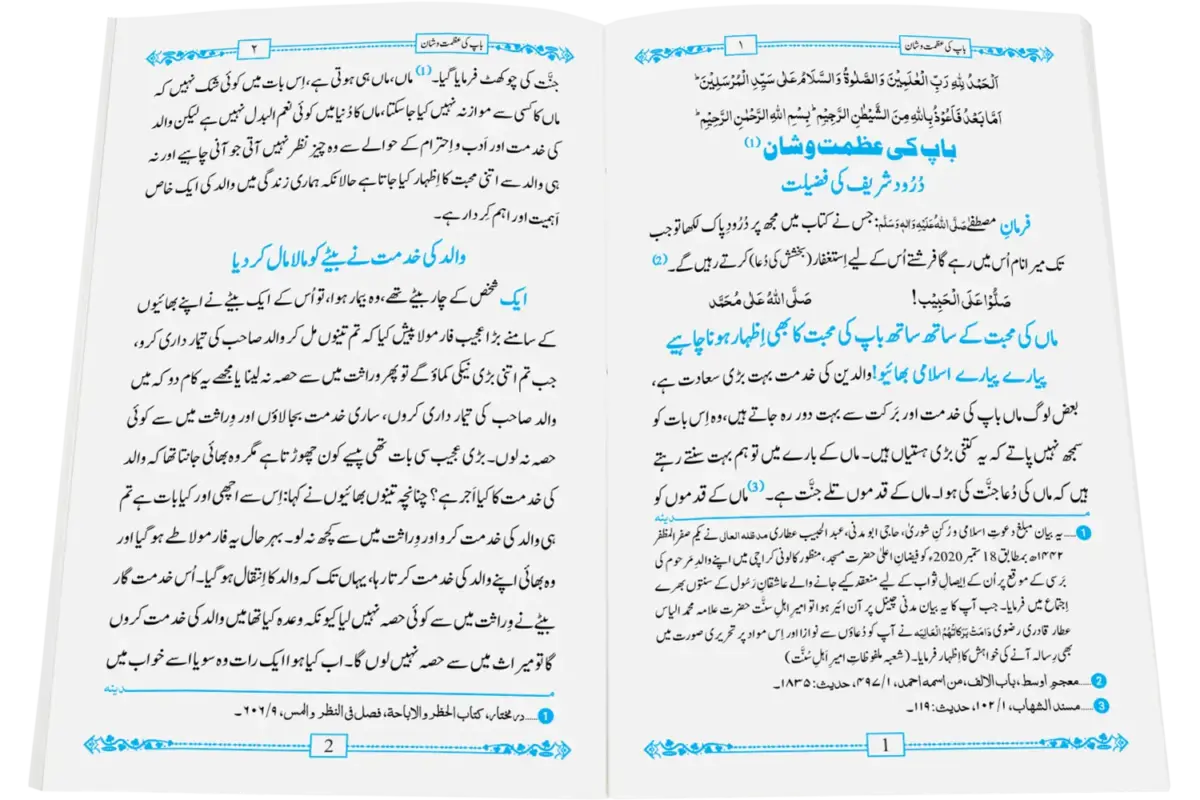 باپ کی عظمت و شان
۱
اَلْحَمْدُ لِلّٰهِ رَبِّ الْعٰلَمِيْنَ وَالصَّلٰوةُ وَالسَّلَامُ عَلٰى سَيِّدِ الْمُرْسَلِيْنَ ؕ
اَمَّا بَعْدُ فَاَعُوْذُ بِاللّٰهِ مِنَ الشَّيْطٰنِ الرَّجِيْمِ ؕ بِسْمِ اللّٰهِ الرَّحْمٰنِ الرَّحِيْمِ ؕ
باپ کی عظمت و شان (1)
دُرُود شریف کی فضیلت
فرمانِ مصطفےٰ صَلَّی اللهُ عَلَیْهِ وَاٰلِهٖ وَسَلَّم: جس نے کتاب میں مجھ پر دُرُودِ پاک لکھا تو جب
تک میرا نام اُس میں رہے گا فرشتے اُس کے لیے اِستغفار (بخشش کی دُعا) کرتے رہیں گے۔ (2)
صَلُّوْا عَلَى الْحَبِيْب! صَلَّى اللهُ عَلٰى مُحَمَّد
ماں کی محبت کے ساتھ ساتھ باپ کی محبت کا بھی اِظہار ہونا چاہیے
پیارے پیارے اسلامی بھائیو! والدین کی خدمت بہت بڑی سعادت ہے،
بعض لوگ ماں باپ کی خدمت اور بَرکت سے بہت دور رہ جاتے ہیں، وہ اِس بات کو
سمجھ نہیں پاتے کہ یہ کتنی بڑی ہستیاں ہیں۔ ماں کے بارے میں تو ہم بہت سنتے رہتے
ہیں کہ ماں کی دُعا جنَّت کی ہوا۔ ماں کے قدموں تلے جنَّت ہے۔ (3) ماں کے قدموں کو
مدینه
1 ..... یہ بیان مبلغِ دعوتِ اسلامی و رُکنِ شوریٰ، حاجی ابو مدنی، عبد الحبیب عطاری مدظلہ العالی نے یکم صفر المظفر
۱۴۴۲ھ بمطابق 18 ستمبر 2020ء کو فیضانِ اعلیٰ حضرت مسجد، منظور کالونی کراچی میں اپنے والدِ مرحوم کی
بَرسی کے موقع پر اُن کے ایصالِ ثواب کے لیے منعقد کیے جانے والے عاشقانِ رَسول کے سنتوں بھرے
اِجتماع میں فرمایا۔ جب آپ کا یہ بیان مدنی چینل پر آن ائیر ہوا تو امیرِ اہلِ سنَّت حضرت علامہ محمد الیاس
عطار قادری رضوی دَامَتْ بَرَکَاتُہُمُ الْعَالِیَہ نے آپ کو دُعاؤں سے نوازا اور اِس مواد پر تحریری صورت میں
بھی رِسالہ آنے کی خواہش کا اِظہار فرمایا۔ (شعبہ ملفوظاتِ امیرِ اہلِ سنَّت)
2 ..... معجمِ اوسط، باب الالف، من اسمه احمد، ۱/ ۴۹۷، حدیث: ۱۸۳۵۔
3 ..... مسند الشهاب، ۱/ ۱۰۲، حدیث: ۱۱۹۔
1
باپ کی عظمت و شان
۲
جنَّت کی چوکھٹ فرمایا گیا۔ (1) ماں، ماں ہی ہوتی ہے، اِس بات میں کوئی شک نہیں کہ
ماں کا کسی سے موازنہ نہیں کیا جا سکتا، ماں کا دُنیا میں کوئی نعم البدل نہیں ہے لیکن والد
کی خدمت اور اَدب و اِحترام کے حوالے سے وہ چیز نظر نہیں آتی جو آنی چاہیے اور نہ
ہی والد سے اتنی محبت کا اِظہار کیا جاتا ہے حالانکہ ہماری زندگی میں والد کی ایک خاص
اَہمیت اور اہم کِردار ہے۔
والد کی خدمت نے بیٹے کو مالا مال کر دیا
ایک شخص کے چار بیٹے تھے، وہ بیمار ہوا، تو اُس کے ایک بیٹے نے اپنے بھائیوں
کے سامنے بڑا عجیب فارمولا پیش کیا کہ تم تینوں مل کر والد صاحب کی تیمار داری کرو،
جب تم اتنی بڑی نیکی کماؤ گے تو پھر وراثت میں سے حصہ نہ لینا یا مجھے یہ کام دو کہ میں
والد صاحب کی تیمار داری کروں، ساری خدمت بجا لاؤں اور وِراثت میں سے کوئی
حصہ نہ لوں۔ بڑی عجیب سی بات تھی پیسے کون چھوڑتا ہے مگر وہ بھائی جانتا تھا کہ والد
کی خدمت کا کیا اَجر ہے؟ چنانچہ تینوں بھائیوں نے کہا: اِس سے اچھی اور کیا بات ہے تم
ہی والد کی خدمت کرو اور وِراثت میں سے کچھ نہ لو۔ بہر حال یہ فارمولا طے ہو گیا اور
وہ بھائی اپنے والد کی خدمت کرتا رہا، یہاں تک کہ والد کا اِنتقال ہو گیا۔ اُس خدمت گار
بیٹے نے وِراثت میں سے کوئی حصہ نہیں لیا کیونکہ وعدہ کیا تھا میں والد کی خدمت کروں
گا تو میراث میں سے حصہ نہیں لوں گا۔ اب کیا ہوا ایک رات وہ سویا اسے خواب میں
مدینه
1 ..... در مختار، کتاب الحظر والاباحة، فصل فی النظر والمس، ۹/ ۶۰۶۔
2